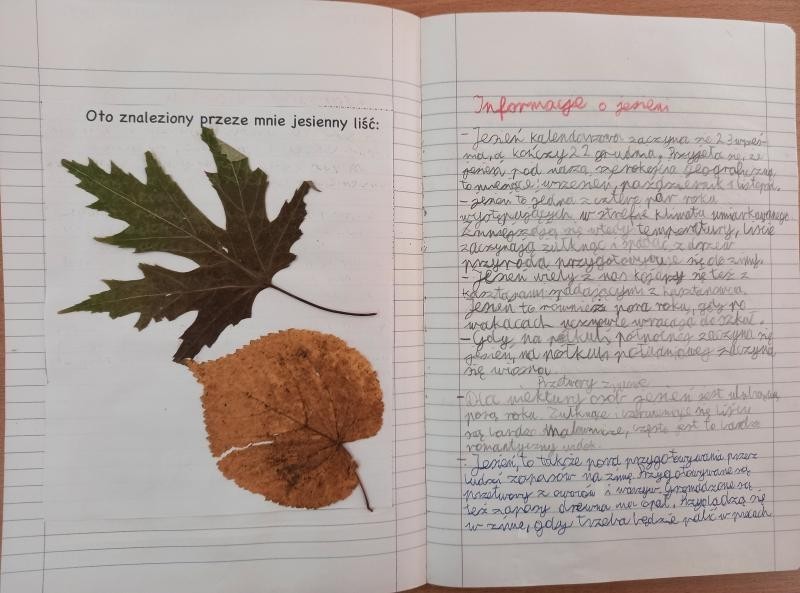 Oto znaleziony przeze mnie jesienny liść:
Informacje o jesieni
- Jesień kalendarzowa zaczyna się 23 wrześ-
nia, a kończy 22 grudnia. Przyjęto się, że
jesień pod naszą szerokością geograficzną
to miesiące: wrzesień, październik i listopad.
- Jesień to jedna z cztery pór roku
występujących w strefie klimatu umiarkowanego.
Zmniejszają się wtedy temperatury, liście
zaczynają żółknąć i spadać z drzew
przyroda przygotowywuje się do zimy.
- Jesień wielu z nas kojarzy się też z
kasztanami spadającymi z kasztanowca.
Jesień to również pora roku, gdy po
wakacach uczniowie wracają do szkół.
- Gdy na półkuli północnej zaczyna się
jesień, na półkuli południowej zaczyna
się wiosna.
Przetwory zimowe
- Dla niektóry osób jesień jest ulubioną
porą roku. Żółknące i czerwieniące się liście
są bardzo malownicze, często jest to bardzo
romantyczny widok.
- Jesień, to także pora przygotowywania przez
ludzi zapasów na zimę. Przygotowywane są
przetwory z owoców i warzyw. Gromadzone są
też zapasy drewna na opał. Przydadzą się
w zimie, gdy trzeba będzie palić w piecach